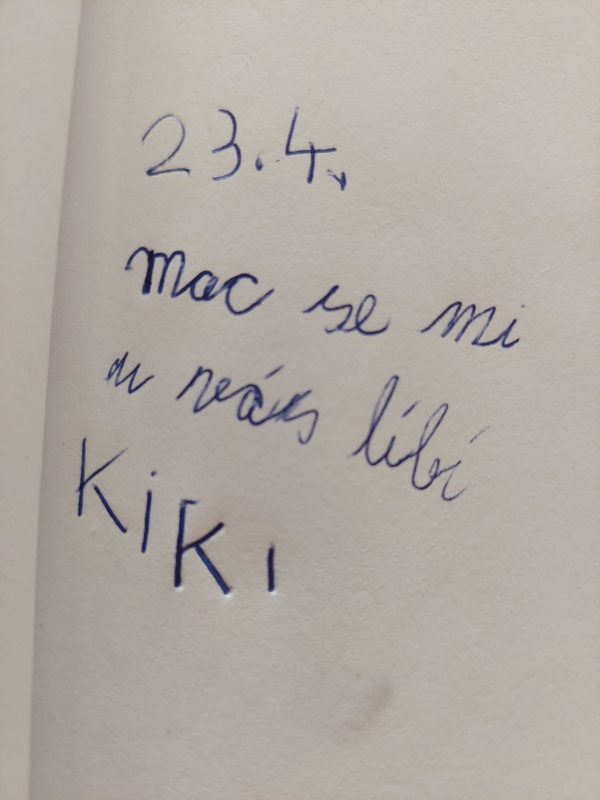 23.4.
moc se mi
u vás líbí
KiKi